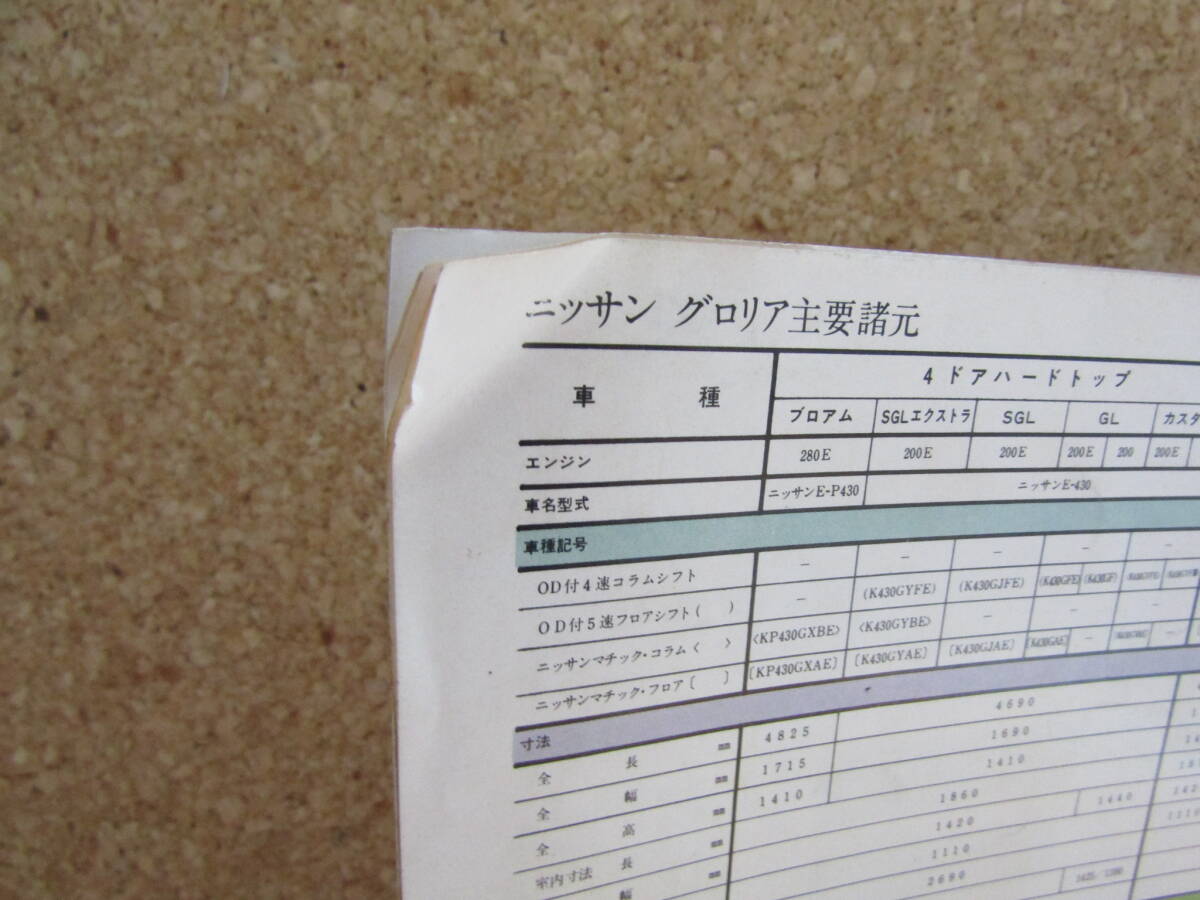 ニッサン グロリア主要諸元
車 種 4ドアハードトップ
ブロアム SGLエクストラ SGL GL カスタ
エンジン 280E 200E 200E 200E 200 200E
車名型式 ニッサンE-P430 ニッサンE-430
車種記号
OD付4速コラムシフト － － － － －
OD付5速フロアシフト( ) － (K430GYFE) (K430GJFE) (K430GFE) (K430GF)
ニッサンマチック・コラム〈 〉 〈KP430GXBE〉 〈K430GYBE〉 － － －
ニッサンマチック・フロア〔 〕 〔KP430GXAE〕 〔K430GYAE〕 〔K430GJAE〕 〔K430GAE〕 － －
寸法
全 長 mm 4825 4690
全 幅 mm 1715 1690
全 高 mm 1410 1410
室内寸法 長 mm 1860 1440
幅 mm 1420
1110
2690